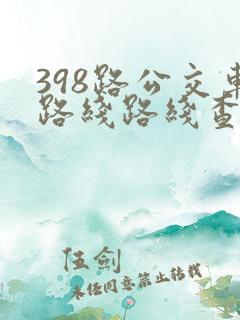 398路公交车
路线路线查
伍剑
未经同意禁止转载